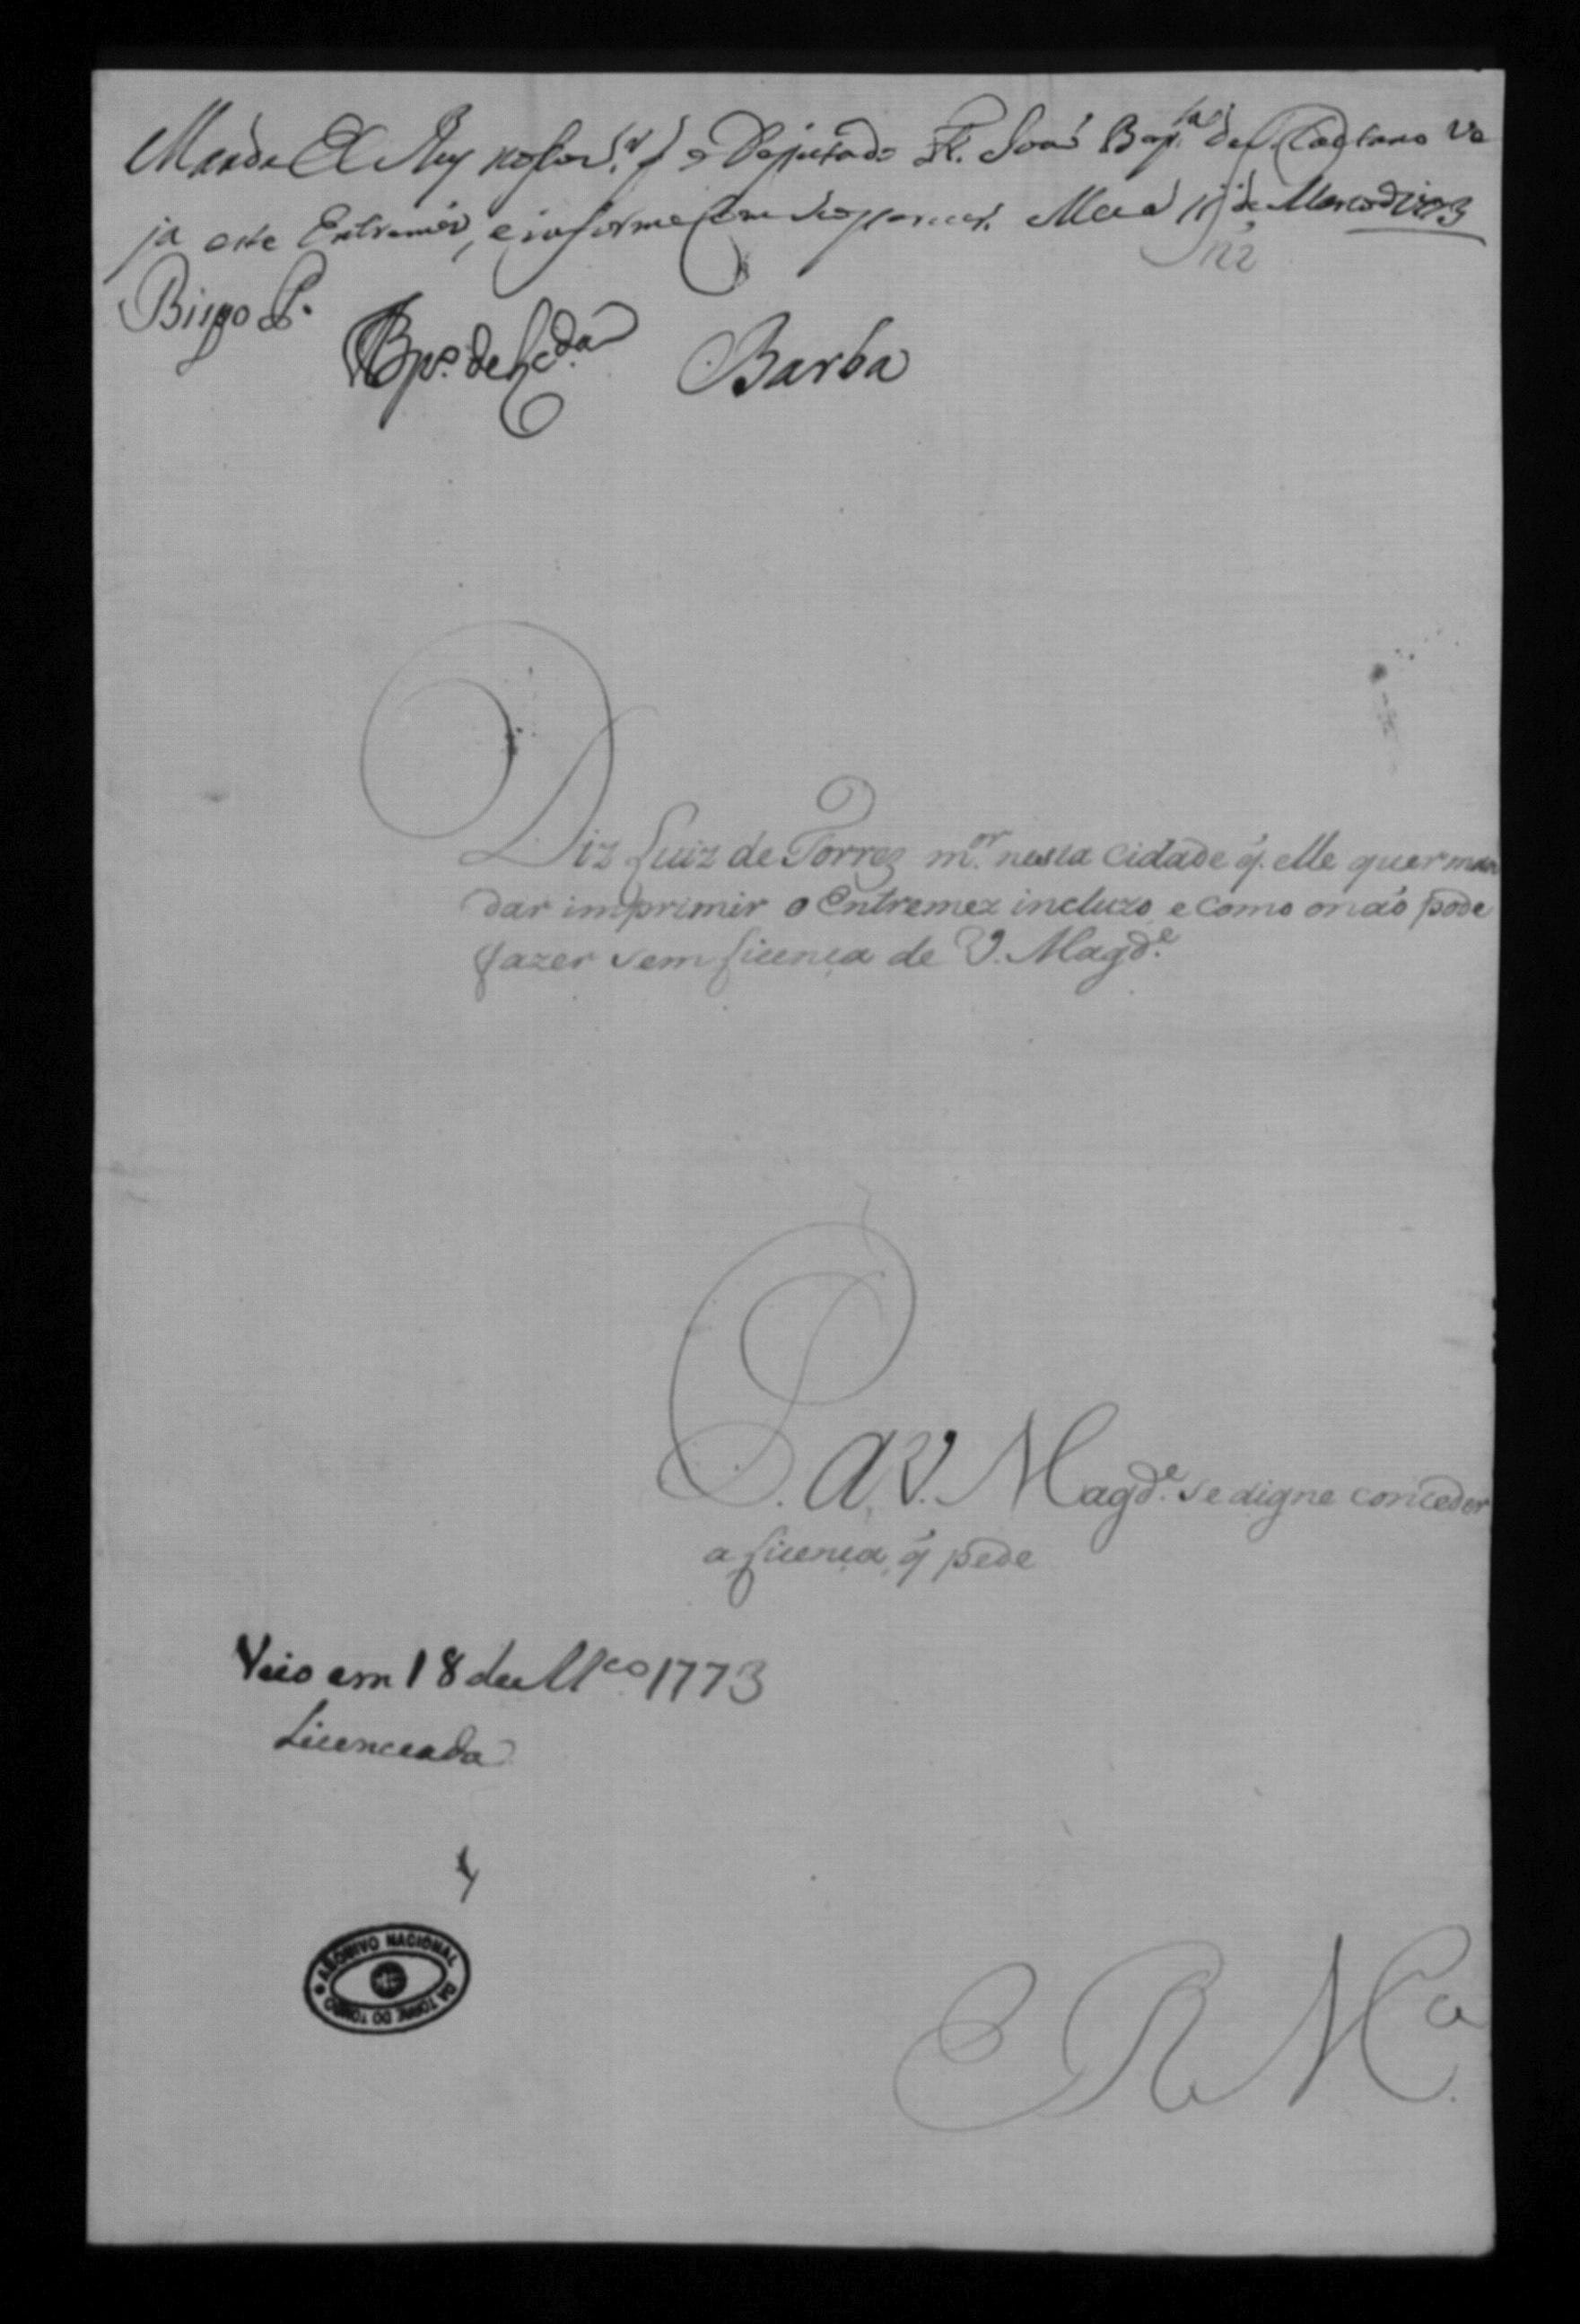 Manda El Rey nosso S.r q̃ o Deputado Fr. Joaõ Bap.ta de S. Caetano Ve
ja este Entremés, e informe com seo parecer. Meza 11 de Março de 1773
Bispo P.
Barba
Diz Luiz de Torres m.or nesta Cidade q̃. elle quer man
dar imprimir o Entremez incluzo, e como o naõ pode
fazer sem licença de V. Magd.e
P. A V. Magd.e se digne conceder
a licença, q̃ pede
Veio em 18 de M.co 1773
Licenceada
E R M.ce
ARQUIVO NACIONAL DA TORRE DO TOMBO